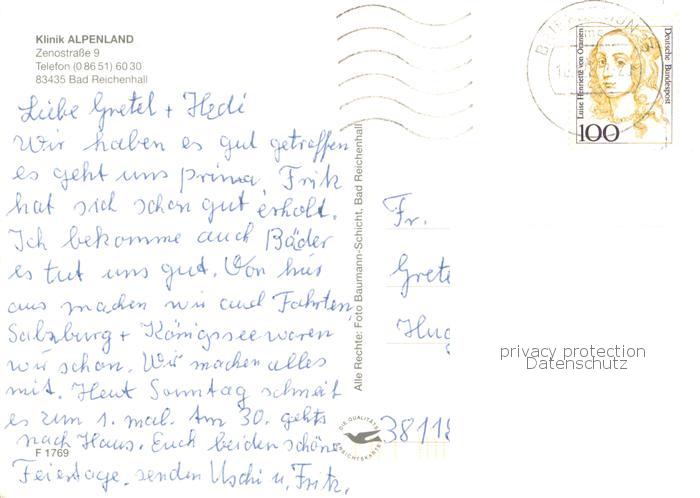 Klinik ALPENLAND
Zenostraße 9
Telefon (0 86 51) 60 30
83435 Bad Reichenhall
Liebe Gretel + Hedi
Wir haben es gut getroffen
es geht uns prima, Fritz
hat sich schon gut erholt.
Ich bekomme auch Bäder
es tut uns gut. Von hier
aus machen wir auch Fahrten,
Salzburg + Königssee waren
wir schon. Wir machen alles
mit. Heut Sonntag schneit
es zum 1. mal. Am 30. gehts
nach Haus. Euch beiden schöne
Feiertage, senden Uschi u. Fritz.
F 1769
Alle Rechte: Foto Baumann-Schicht, Bad Reichenhall
DIE QUALITÄTS
ANSICHTSKARTE
Fr.
Grete
Hug
38118
Luise Henriette von Oranien
Deutsche Bundespost
100
privacy protection
Datenschutz